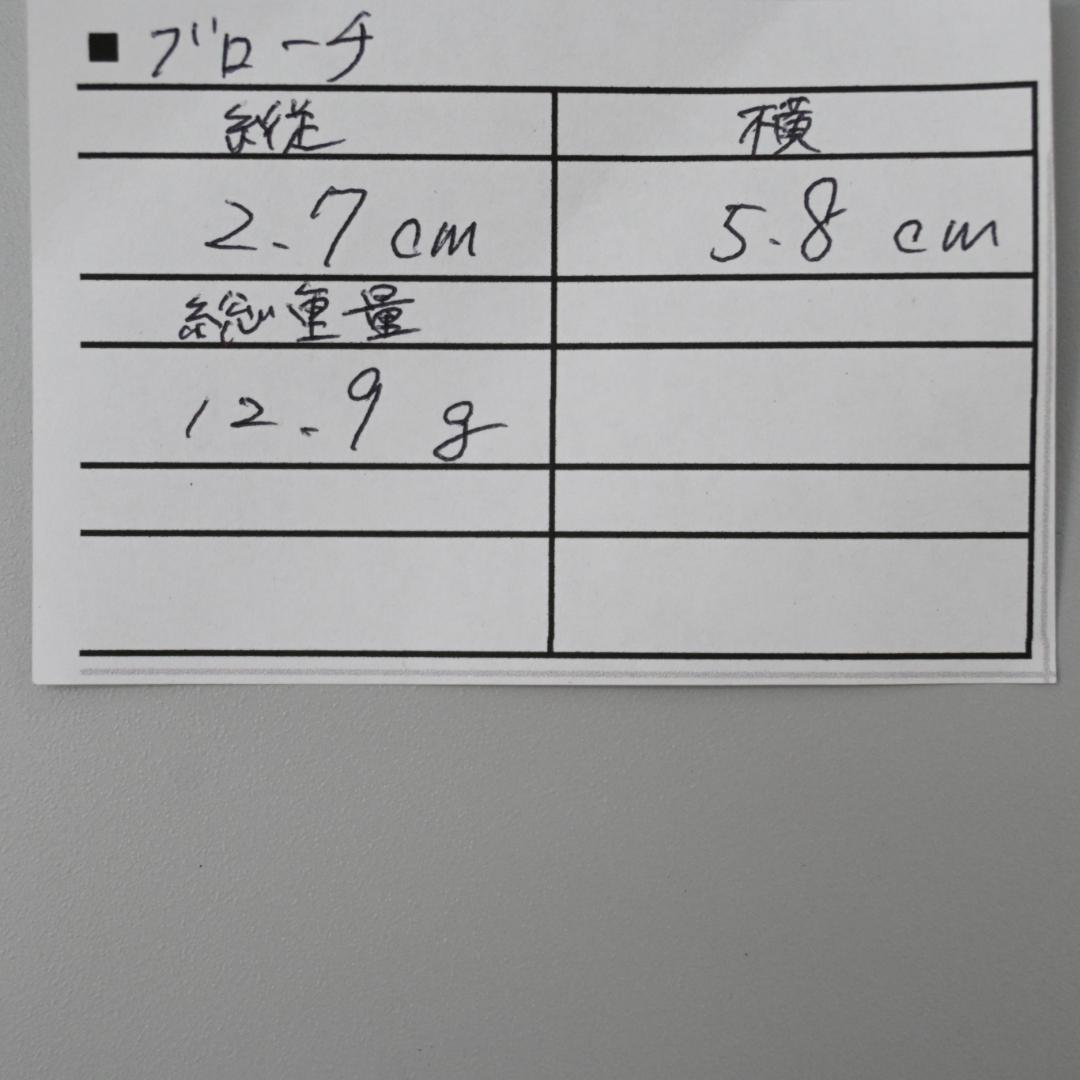 ■ ブローチ
縦 横
2.7 cm 5.8 cm
総重量
12.9 g